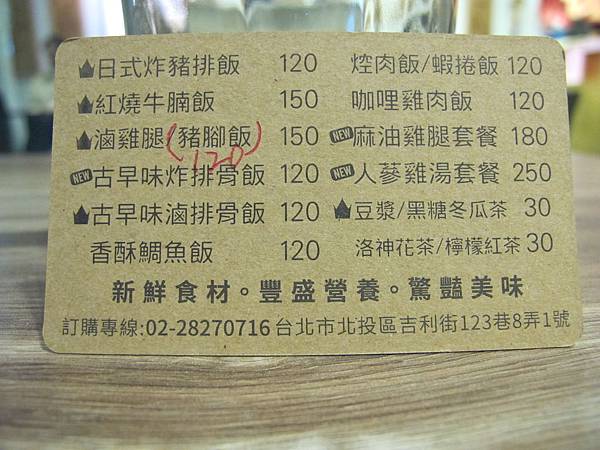 日式炸豬排飯 120 焢肉飯/蝦捲飯 120
紅燒牛腩飯 150 咖哩雞肉飯 120
滷雞腿(豬腳飯) 150 NEW 麻油雞腿套餐 180
120
NEW 古早味炸排骨飯 120 NEW 人蔘雞湯套餐 250
古早味滷排骨飯 120 豆漿/黑糖冬瓜茶 30
香酥鯛魚飯 120 洛神花茶/檸檬紅茶 30
新鮮食材。豐盛營養。驚豔美味
訂購專線:02-28270716 台北市北投區吉利街123巷8弄1號